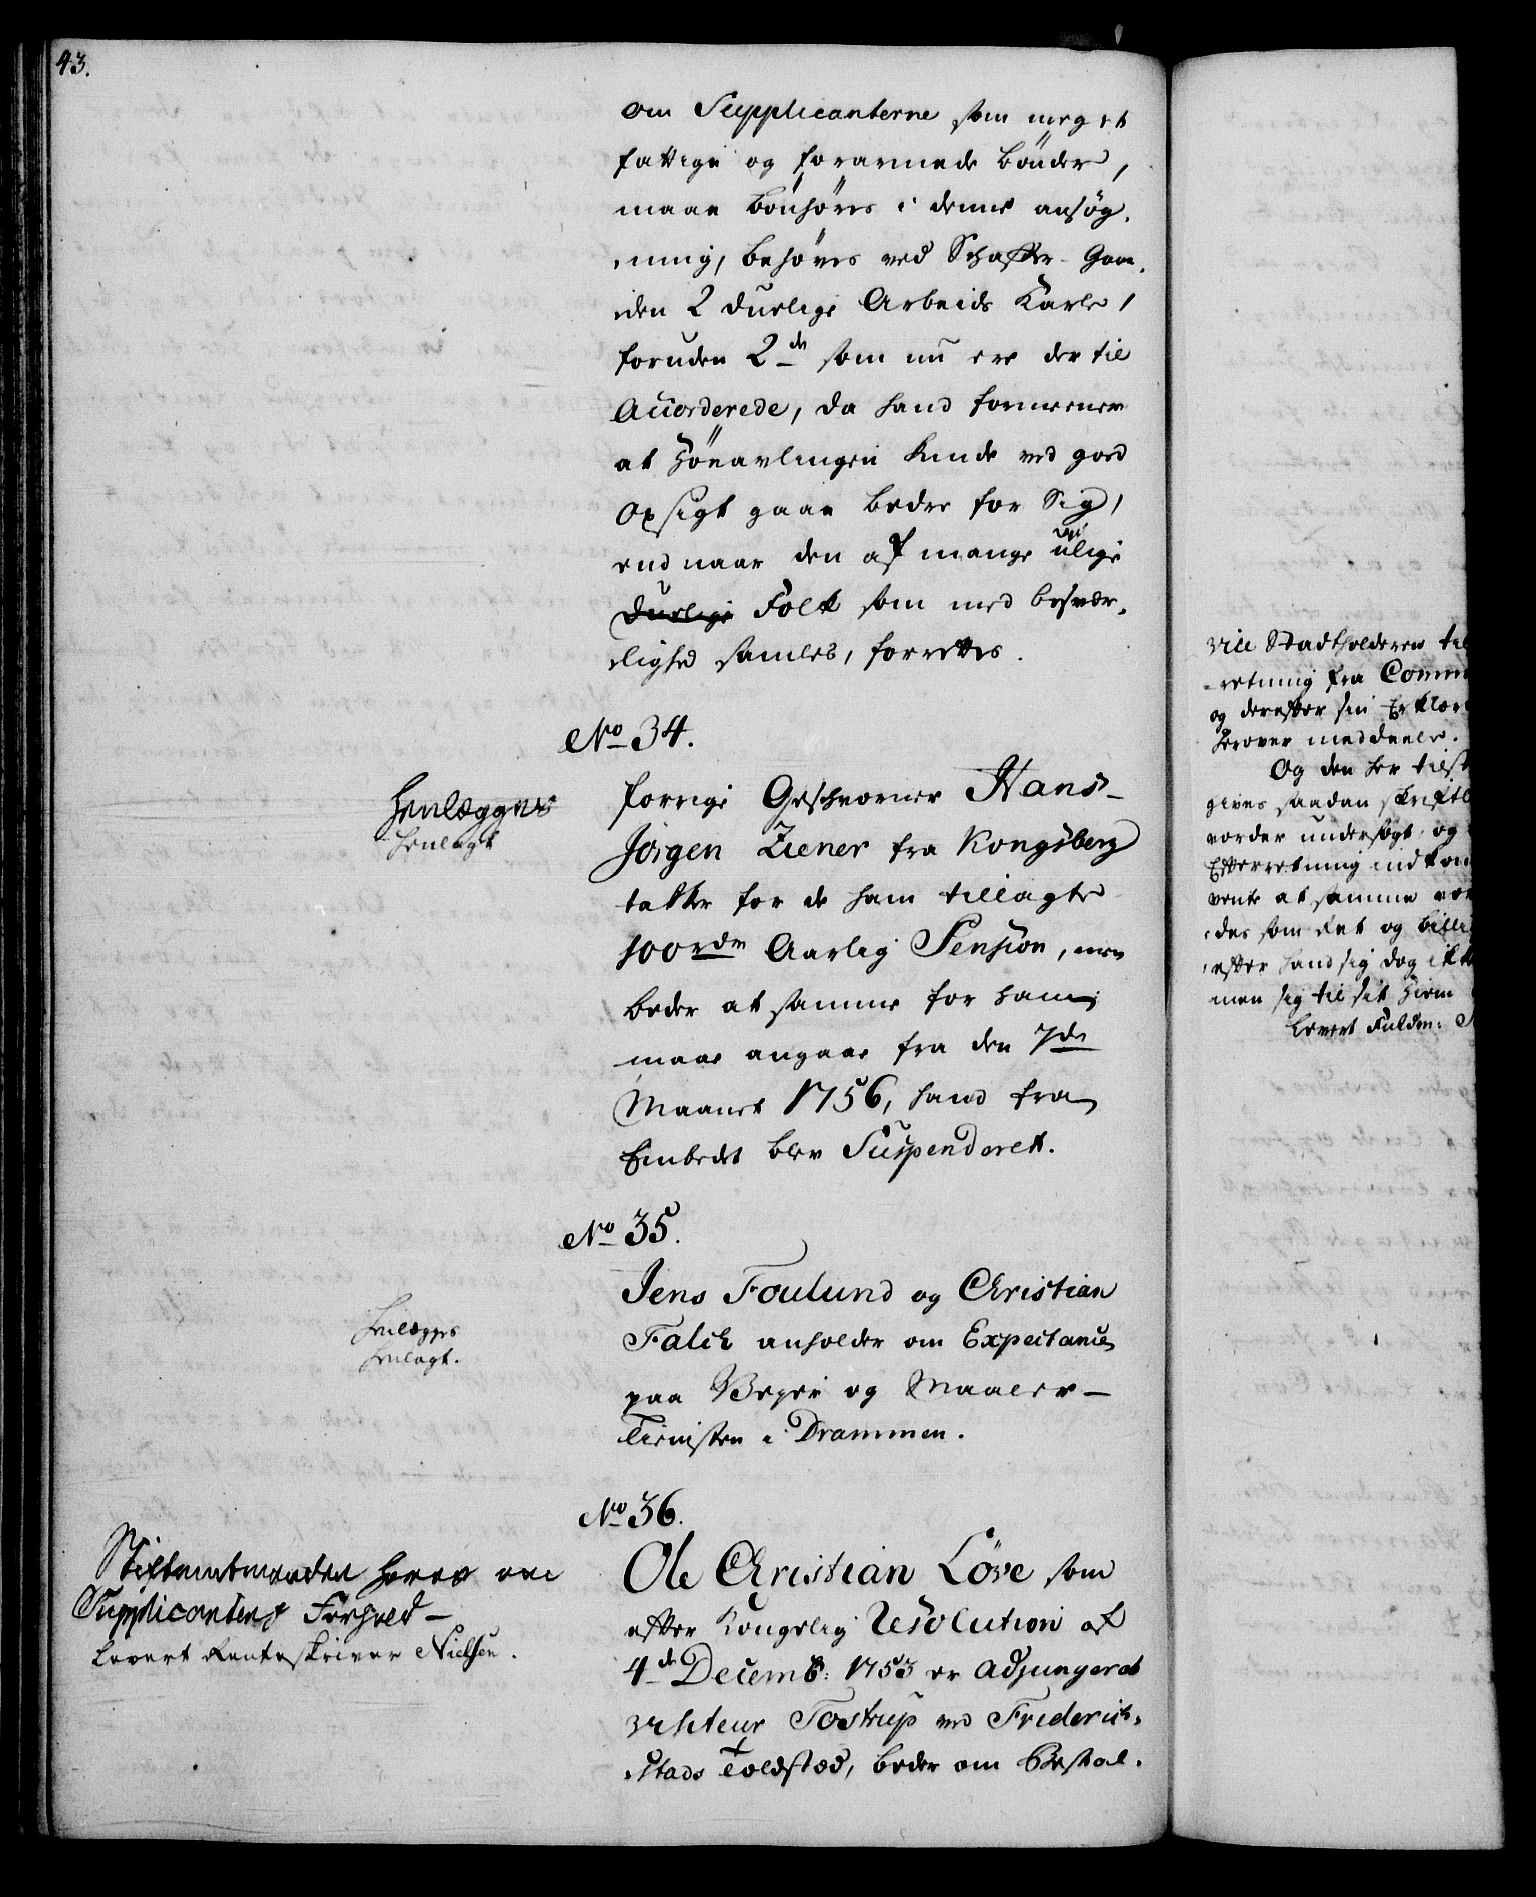 43.
om Supplicanterne som meget
fattige og forarmede bönder,
maae bönhöres i denne ansøg-
ning, behöves ved Schaffer-Gaar-
den 2 duelige Arbeids Karle,
foruden 2de som nu ere der til
Accorderede, da hand formeener
at Höeavlingen kunde ved good
Opsigt gaae bedre for Sig,
end naar den af mange ulige
duelige Folk som med besvær-
lighed samles, forrettes.
No 34.
Henlægges
henlagt
forrige Geschworner Hans
Jörgen Ziener fra Kongsberg
takker for de ham tillagte
100rdr Aarlig Pension, men
beder at samme for ham
maae angaae fra den 7de
Maanet 1756, hand fra
Embedet blev Suspenderet.
No 35.
Henlægges
henlagt.
Jens Foulund og Christian
Falck anholder om Expectance
paa Veyer og Maaler-
Tienisten i Drammen.
No 36.
Stiftamtmanden høres om
Supplicantens Forhold
Levert Renteskriver Nielsen.
Ole Christian Löve som
efter Kongelig Resolution af
4de Decemb: 1753 er Adjungeret
Visiteur Tostrup ved Friderich-
stads Toldsted, beder om Bestal-
vice Stadtholderen til
-retning fra Comm
og derefter sin Erklær
herover meddeele.
Og den her tilst
gives saadan skriftl
vorder undersøgt, og
Efterretning indkom
vente at samme vor
des som Ret og billi
efter hand sig dog ikk
men sig til sit Hiem
Levert Fuldm: S